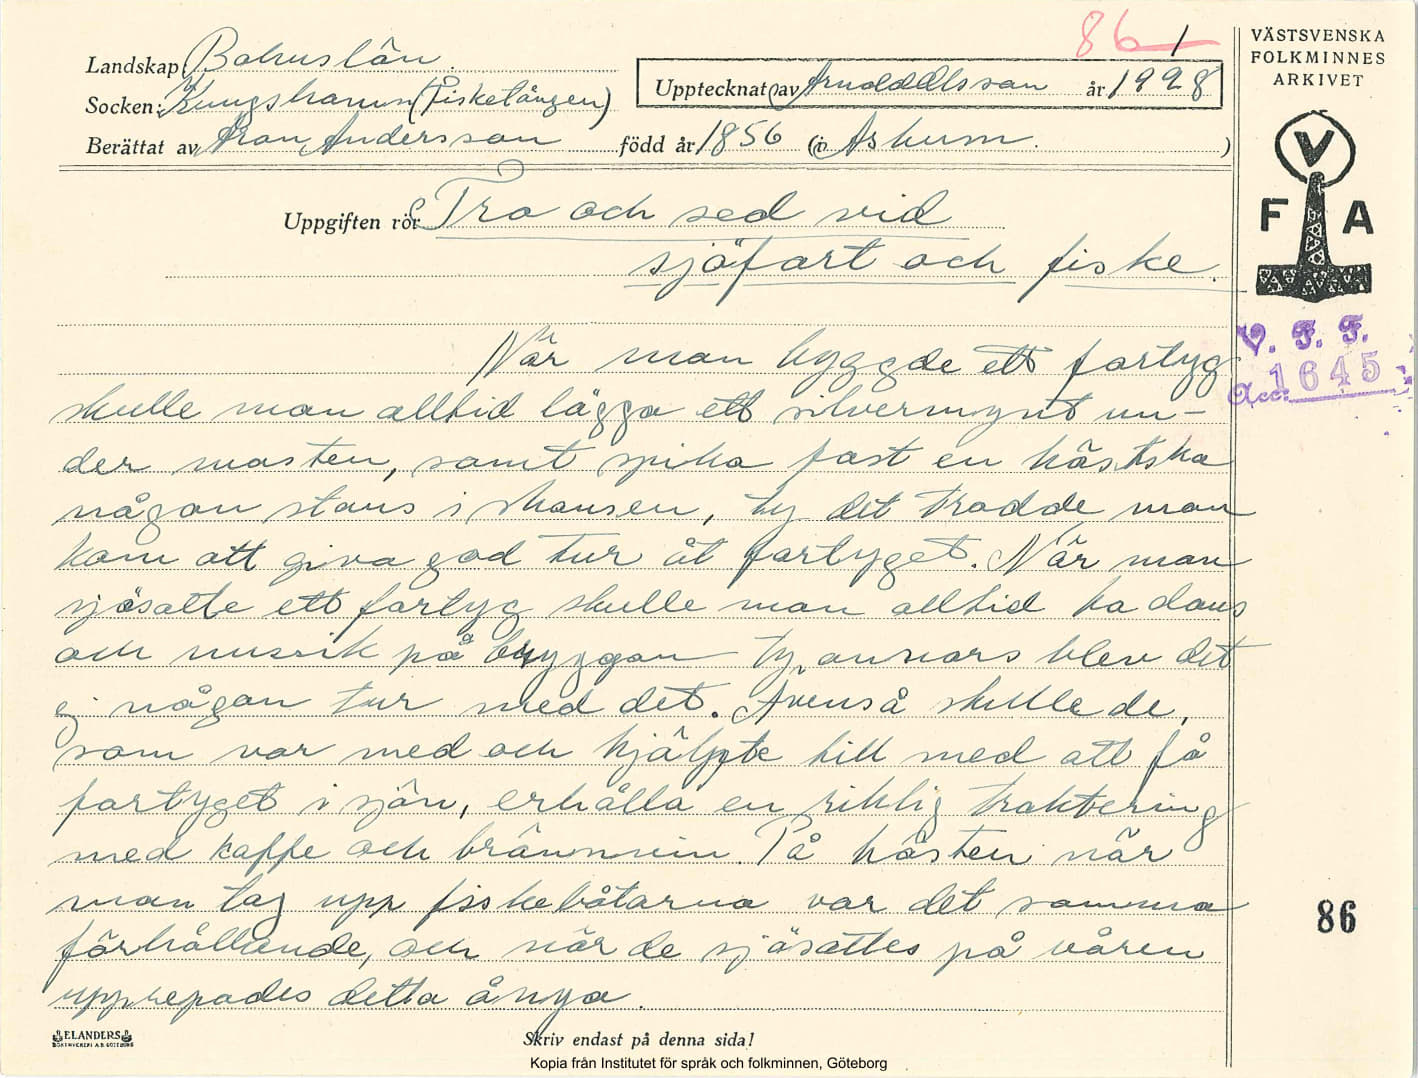 86 1
VÄSTSVENSKA
FOLKMINNES
ARKIVET
Landskap: Bohuslän.
Upptecknat av Arnold Olsson år 1928
Socken: Kungshamn (Fisketången)
Berättat av Aron Andersson född år 1856 (i Askum.)
V
F A
Uppgiften rör Tro och sed vid
sjöfart och fiske.
V. F. F.
Acc. 1645
När man byggde ett fartyg
skulle man alltid lägga ett silvermynt un-
der masten, samt spika fast en hästsko
någon stans i skansen, ty det trodde man
kom att giva god tur åt fartyget. När man
sjösatte ett fartyg skulle man alltid ha dans
och musik på bryggan ty annars blev det
ej någon tur med det. Ävenså skulle de,
som var med och hjälpte till med att få
fartyget i sjön, erhålla en riklig traktering
med kaffe och brännvin. På hösten när
man tog upp fiskebåtarna var det samma
förhållande, och när de sjösattes på våren
upprepades detta ånyo.
86
ELANDERS
BOKTRYCKERI A.B. GÖTEBORG
Skriv endast på denna sida!
Kopia från Institutet för språk och folkminnen, Göteborg